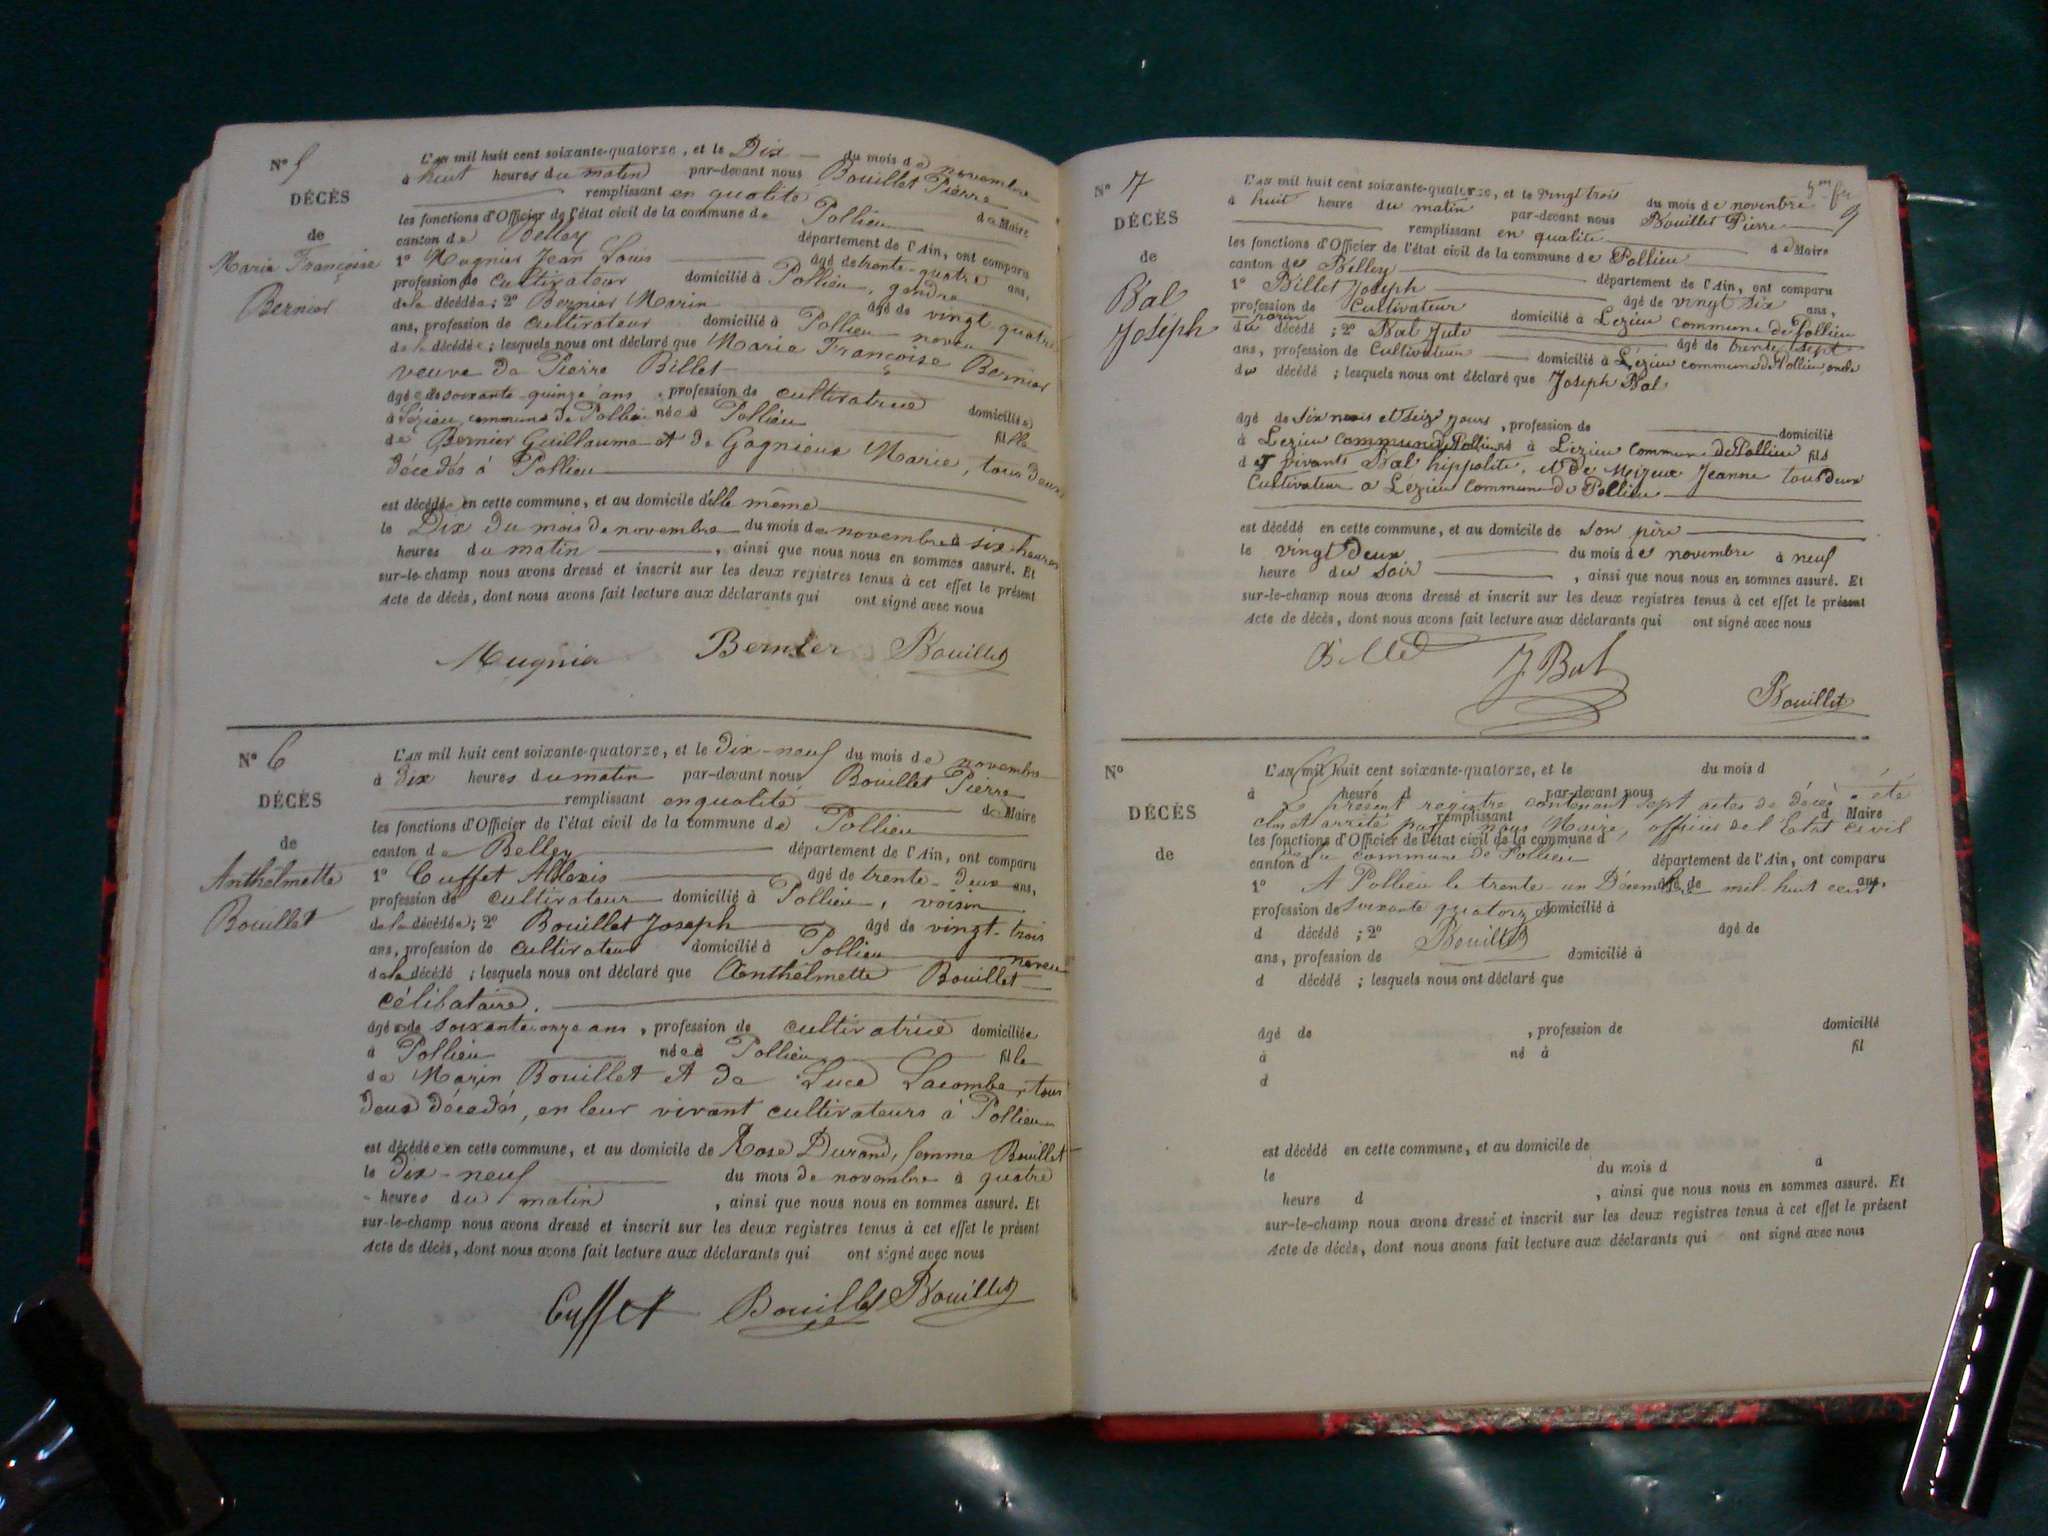 N° 5
DÉCÈS
de
Marie Françoise
Bernier
L'AN mil huit cent soixante-quatorze, et le Dix du mois de novembre
à huit heures du matin par-devant nous Bouillet Pierre
remplissant en qualité de Maire
les fonctions d'Officier de l'état civil de la commune de Pollieu
canton de Belley département de l'Ain, ont comparu
1° Mugnier Jean Louis âgé de trente-quatre ans,
profession de cultivateur domicilié à Pollieu, gendre
de la décédée; 2° Bernier Marin âgé de vingt quatre
ans, profession de cultivateur domicilié à Pollieu neveu
de la décédée; lesquels nous ont déclaré que Marie Françoise Bernier
veuve de Pierre Billet
âgée de soixante-quinze ans, profession de cultivatrice domiciliée
à Lézieu commune de Pollieu née à Pollieu fille
de Bernier Guillaume et de Gagnieux Marie, tous deux
décédés à Pollieu
est décédée en cette commune, et au domicile d'elle même
le Dix du mois de novembre du mois de novembre à six heures
heures du matin, ainsi que nous nous en sommes assuré. Et
sur-le-champ nous avons dressé et inscrit sur les deux registres tenus à cet effet le présent
Acte de décès, dont nous avons fait lecture aux déclarants qui ont signé avec nous
Mugnier Bernier Bouillet
N° 6
DÉCÈS
de
Anthelmette
Bouillet
L'AN mil huit cent soixante-quatorze, et le dix-neuf du mois de novembre
à dix heures du matin par-devant nous Bouillet Pierre
remplissant en qualité de Maire
les fonctions d'Officier de l'état civil de la commune de Pollieu
canton de Belley département de l'Ain, ont comparu
1° Cuffet Alexis âgé de trente-deux ans,
profession de cultivateur domicilié à Pollieu, voisin
de la décédée; 2° Bouillet Joseph âgé de vingt-trois
ans, profession de cultivateur domicilié à Pollieu neveu
de la décédé; lesquels nous ont déclaré que Anthelmette Bouillet
célibataire.
âgée de soixante onze ans, profession de cultivatrice domiciliée
à Pollieu née à Pollieu fille
de Marin Bouillet et de Luce Lacombe, tous
deux décédés, en leur vivant cultivateurs à Pollieu
est décédée en cette commune, et au domicile de Rose Durand, femme Bouillet
le dix-neuf du mois de novembre à quatre
heures du matin, ainsi que nous nous en sommes assuré. Et
sur-le-champ nous avons dressé et inscrit sur les deux registres tenus à cet effet le présent
Acte de décès, dont nous avons fait lecture aux déclarants qui ont signé avec nous
Cuffet Bouillet Bouillet
N° 7
DÉCÈS
de
Bal
Joseph
L'AN mil huit cent soixante-quatorze, et le vingt trois du mois de novembre
à huit heure du matin par-devant nous Bouillet Pierre
remplissant en qualité de Maire
les fonctions d'Officier de l'état civil de la commune de Pollieu
canton de Belley département de l'Ain, ont comparu
1° Billet Joseph âgé de vingt six ans,
profession de Cultivateur domicilié à Lezieu commune de Pollieu
du décédé; 2° Bal âgé de trente sept
ans, profession de Cultivateur domicilié à Lézieu commune de Pollieu oncle
du décédé; lesquels nous ont déclaré que Joseph Bal
âgé de six mois et seize jours, profession de domicilié
à Lezieu commune de Pollieu né à Lezieu commune de Pollieu fils
de vivants Bal hippolite, et de Jeanne tous deux
Cultivateur a Lezieu commune de Pollieu
est décédé en cette commune, et au domicile de son père
le vingt deux du mois de novembre à neuf
heure du soir, ainsi que nous nous en sommes assuré. Et
sur-le-champ nous avons dressé et inscrit sur les deux registres tenus à cet effet le présent
Acte de décès, dont nous avons fait lecture aux déclarants qui ont signé avec nous
Billet J Bal
Bouillet
N°
DÉCÈS
de
L'AN mil huit cent soixante-quatorze, et le du mois d
à heure d par-devant nous
Le présent registre contenant sept actes de décès a été
remplissant d Maire
clos et arrêté par nous Maire, officier de l'Etat civil
les fonctions d'Officier de l'état civil de la commune d
de la commune de Pollieu
canton d département de l'Ain, ont comparu
1° âgé de ans,
A Pollieu le trente-un Décembre mil huit cent
profession de domicilié à
soixante quatorze
d décédé; 2° âgé de
Bouillet
ans, profession de domicilié à
d décédé; lesquels nous ont déclaré que
âgé de, profession de domicilié
à né à fil
d
est décédé en cette commune, et au domicile de
le du mois d d
heure d, ainsi que nous nous en sommes assuré. Et
sur-le-champ nous avons dressé et inscrit sur les deux registres tenus à cet effet le présent
Acte de décès, dont nous avons fait lecture aux déclarants qui ont signé avec nous